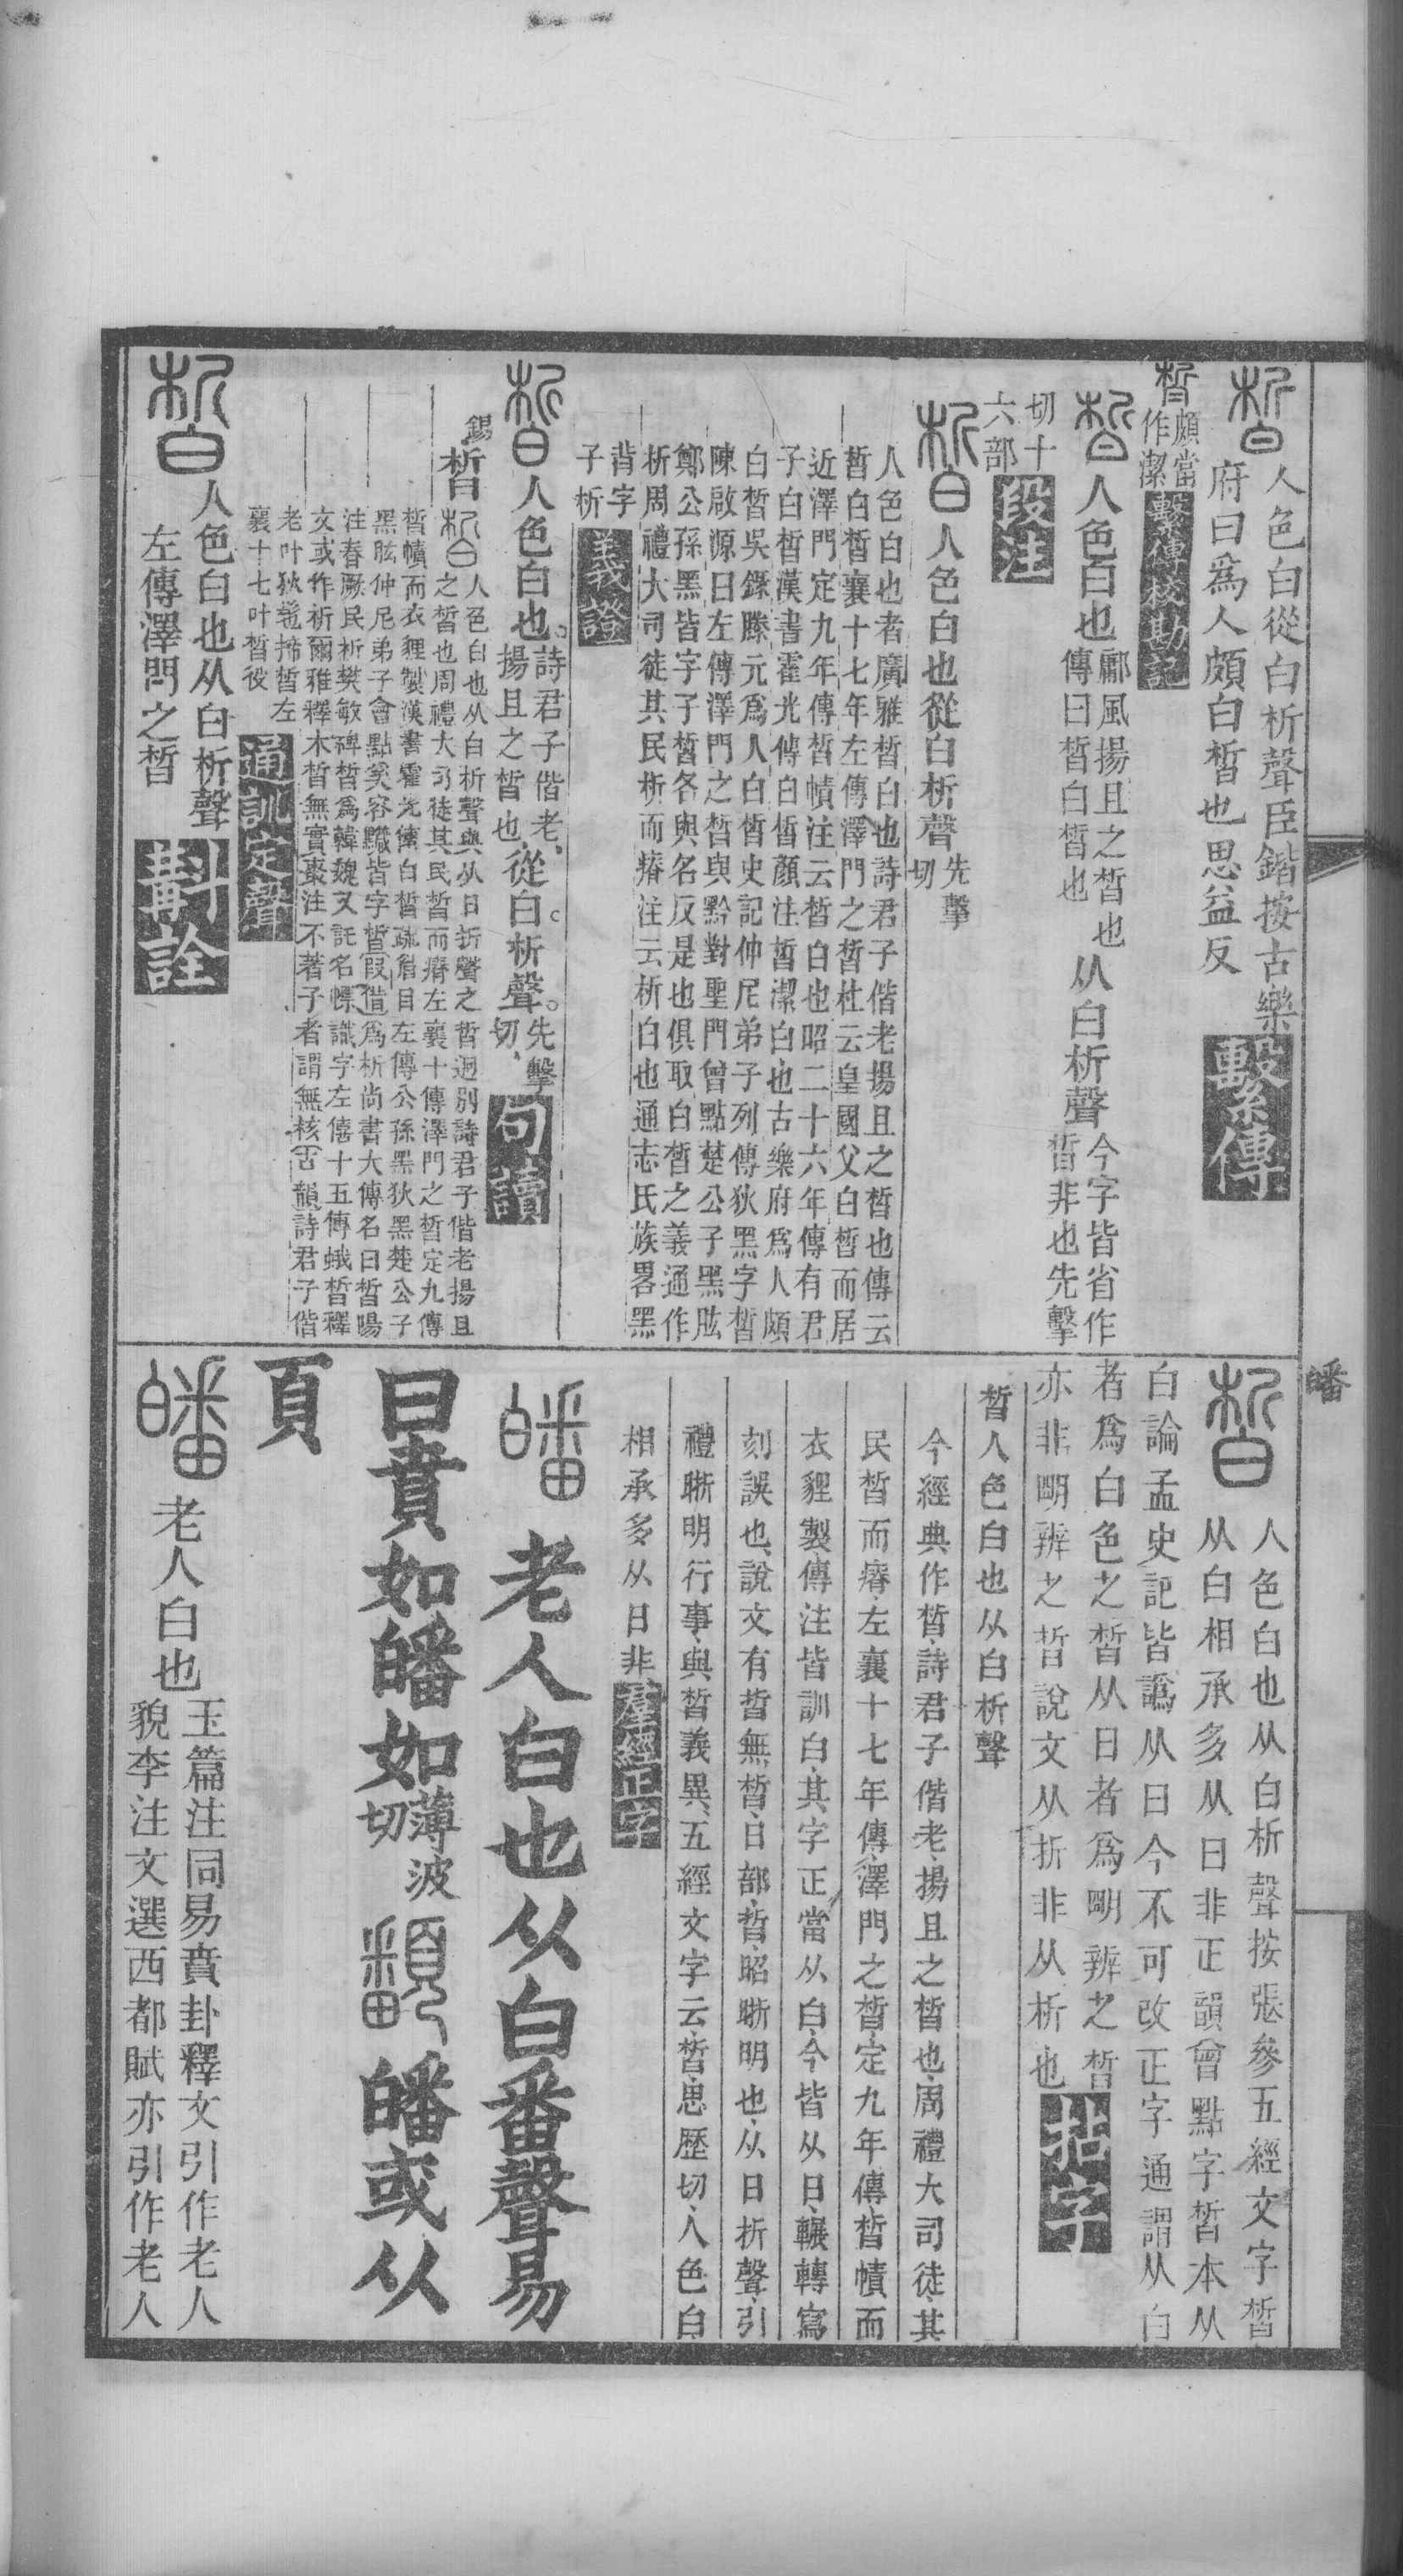 人色白從白析聲臣鍇按古樂
府曰爲人頗白皙也思益反
繫傳
皙頗當
作潔
繫傳校勘記
人色白也
鄘風揚且之皙也
傳曰皙白皙也
从白析聲
今字皆省作
皙非也先擊
切十
六部
段注
人色白也從白析聲
先擊
切
人色白也者廣雅皙白也詩君子偕老揚且之皙也傳云
皙白皙襄十七年左傳澤門之皙杜云皇國父白皙而居
近澤門定九年傳皙幘注云皙白也昭二十六年傳有君
子白皙漢書霍光傳白皙顏注皙潔白也古樂府爲人頗
白皙吳錄滕元爲人白皙史記仲尼弟子列傳狄黑字皙
陳啟源曰左傳澤門之皙與黔對聖門曾點楚公子黑肱
鄭公孫黑皆字子皙各與名反是也俱取白皙之義通作
析周禮大司徒其民析而瘠注云析白也通志氏族畧黑
背字
子析
義證
人色白也
詩君子偕老
揚且之皙也
從白析聲
先擊
切
句讀
錫
皙
人色白也从白析聲與从日折聲之晢迥別詩君子偕老揚且
之皙也周禮大司徒其民皙而瘠左襄十傳澤門之皙定九傳
皙幘而衣貍製漢書霍光傳白皙疏眉目左傳公孫黑狄黑楚公子
黑肱仲尼弟子曾點奚容黵皆字皙假借爲析尚書大傳名曰皙陽
注春厥民析樊敏碑皙爲韓魏又託名幖識字左僖十五傳蛾皙釋
文或作析爾雅釋木皙無實棗注不著子者謂無核古韻詩君子偕
老叶狄髢揥皙左
襄十七叶皙役
通訓定聲
人色白也从白析聲
左傳澤門之皙
斠詮
皤
人色白也从白析聲按張參五經文字皙
从白相承多从日非正韻會點字皙本从
白論孟史記皆譌从日今不可改正字通謂从白
者爲白色之皙从日者爲明辨之晢
亦非明辨之晢說文从折非从析也
拈字
皙人色白也从白析聲
今經典作晳詩君子偕老揚且之晳也周禮大司徒其
民晳而瘠左襄十七年傳澤門之晳定九年傳晳幘而
衣貍製傳注皆訓白其字正當从白今皆从日輾轉寫
刻誤也說文有晢無晳日部晢昭晣明也从日折聲引
禮晣明行事與皙義異五經文字云皙思歷切人色白
相承多从日非
羣經正字
老人白也从白番聲易
曰賁如皤如
薄波
切
皤或从
頁
老人白也
玉篇注同易賁卦釋文引作老人
貌李注文選西都賦亦引作老人